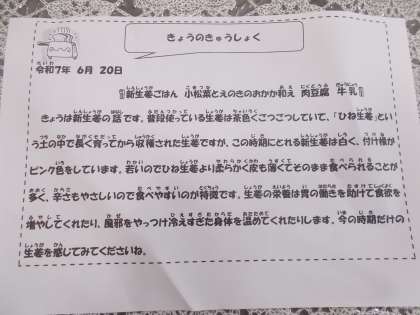 きょうのきゅうしょく
令和7年 6月 20日
【新生姜ごはん 小松菜とえのきのおかか和え 肉豆腐 牛乳】
きょうは新生姜の話です。普段使っている生姜は茶色くごつごつしていて、「ひね生姜」とい
う土の中で長く育ってから収穫された生姜ですが、この時期にとれる新生姜は白く、付け根が
ピンク色をしています。若いのでひね生姜より柔らかく皮も薄くてそのまま食べられることが
多く、辛さもやさしいので食べやすいのが特徴です。生姜の栄養は胃の働きを助けて食欲を
増やしてくれたり、風邪をやっつけ冷えすぎた身体を温めてくれたりします。今の時期だけの
生姜を感じてみてくださいね。